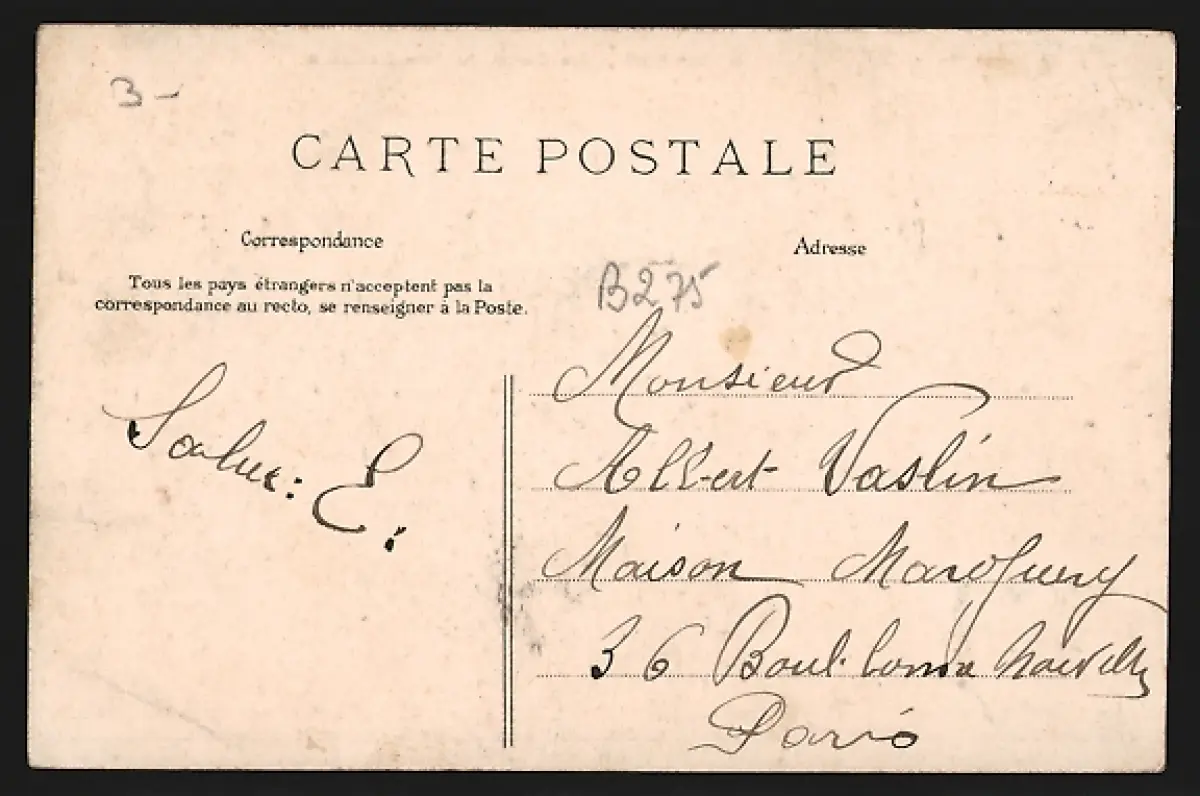 3 -
CARTE POSTALE
Correspondance
Adresse
Tous les pays étrangers n'acceptent pas la
correspondance au recto, se renseigner à la Poste.
B275
Monsieur
Albert Vaslin
Maison Marguery
36 Boul. Bonne Nouvelle
Paris
E.